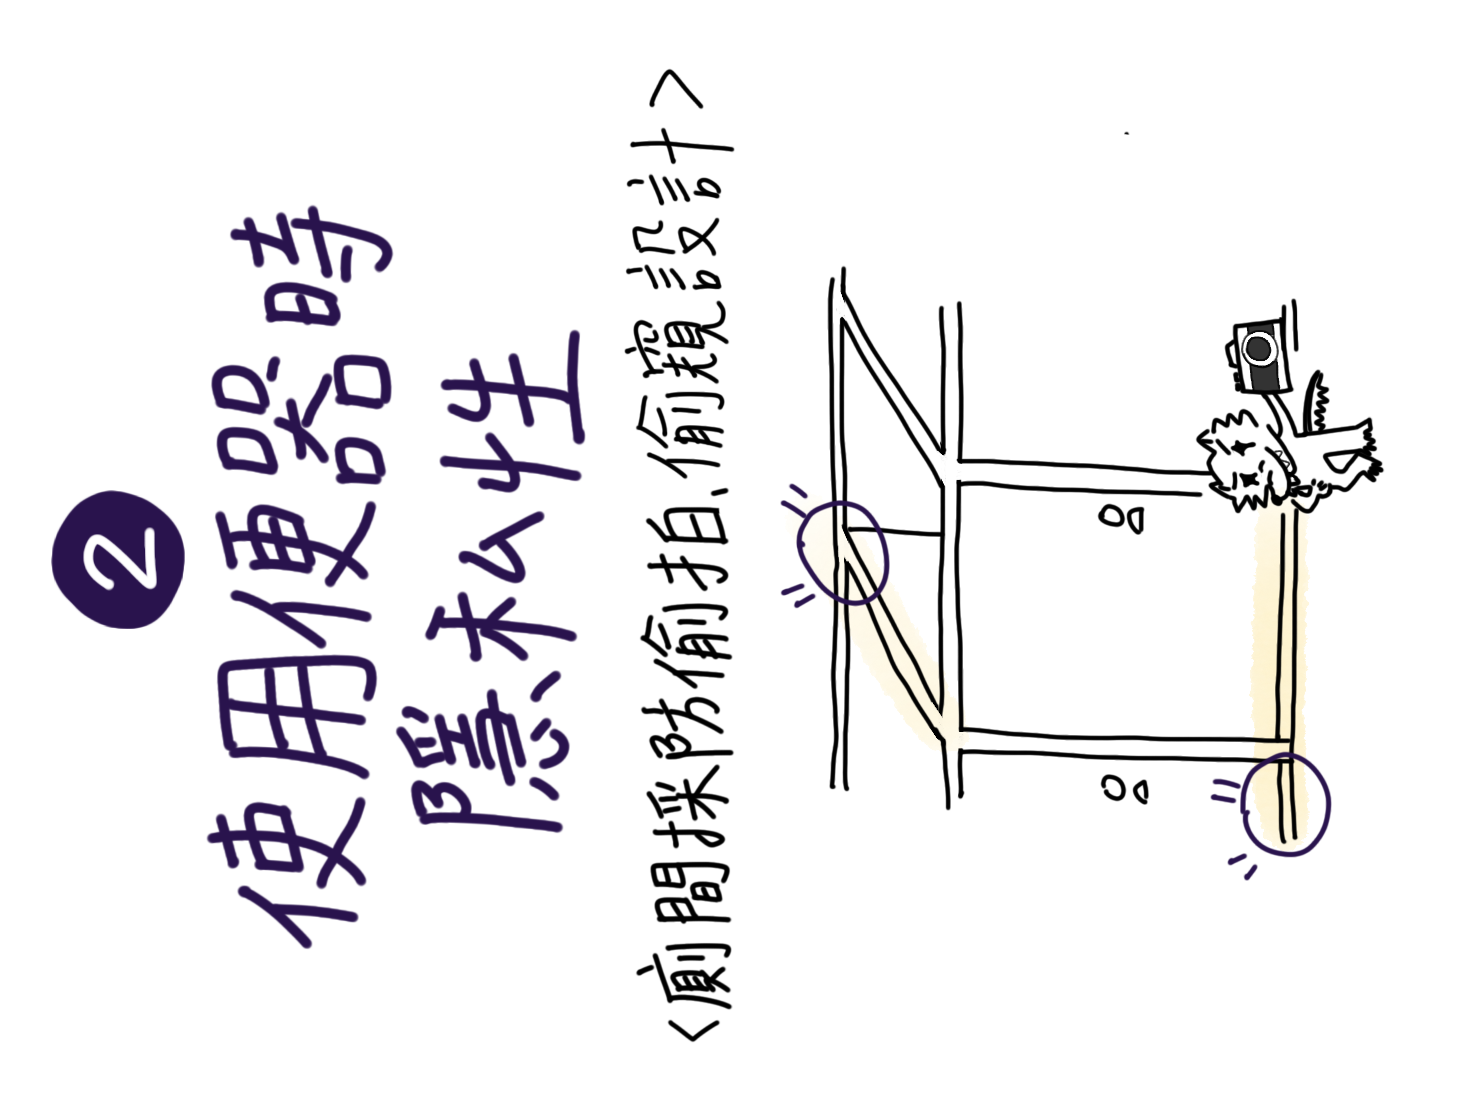 2
使用便器時
隱私性
<廁間採防偷拍、偷窺設計>